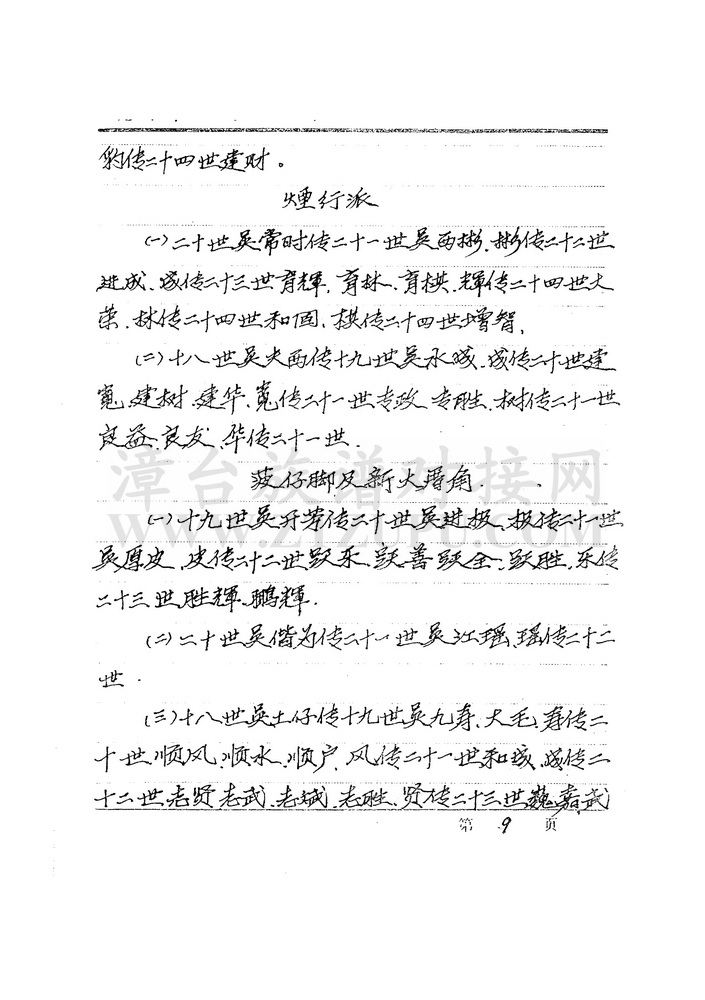 豹传二十四世建财。
煙行派
(一)二十世吴常时传二十一世吴西彬、彬传二十二世
进成、成传二十三世育輝、育林、育棋、輝传二十四世大
荣、林传二十四世和国、棋传二十四世增智、
(二)十八世吴夫西传十九世吴水城、城传二十世建
寬、建树、建华、寬传二十一世专政、专胜、树传二十一世
良益、良友、华传二十一世.
菠仔脚及新大厝角.
(一)十九世吴开芽传二十世吴进极、极传二十一世
吴厚皮、皮传二十二世跃东、跃善、跃全、跃胜、东传
二十三世胜輝、鹏輝.
(二)二十世吴偕为传二十一世吴江瑶、瑶传二十二
世.
(三)十八世吴土仔传十九世吴九寿、大毛、寿传二
十世顺风、顺水、顺户、风传二十一世和城、城传二
十二世志贤、志武、志城、志胜、贤传二十三世巍嘉、武
第 9 页
漳台族谱对接网